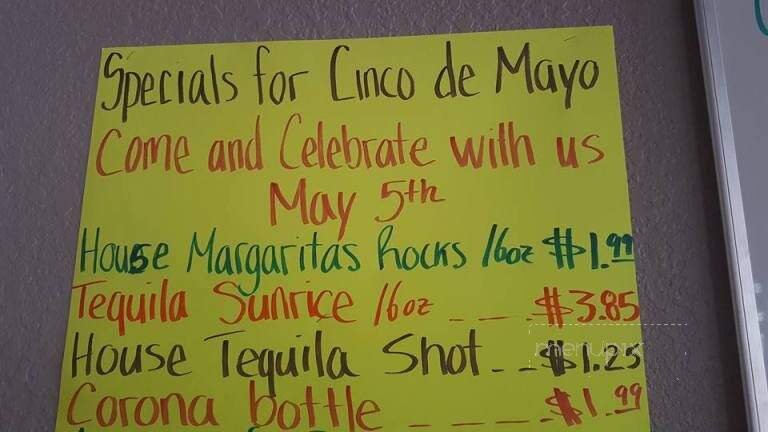 Specials for Cinco de Mayo
Come and Celebrate with us
May 5th
House Margaritas Rocks 16oz $1.99
Tequila Sunrice 16oz _ _ _ $3.85
House Tequila Shot _ _ $1.25
Corona bottle _ _ _ _ $1.99
menupix